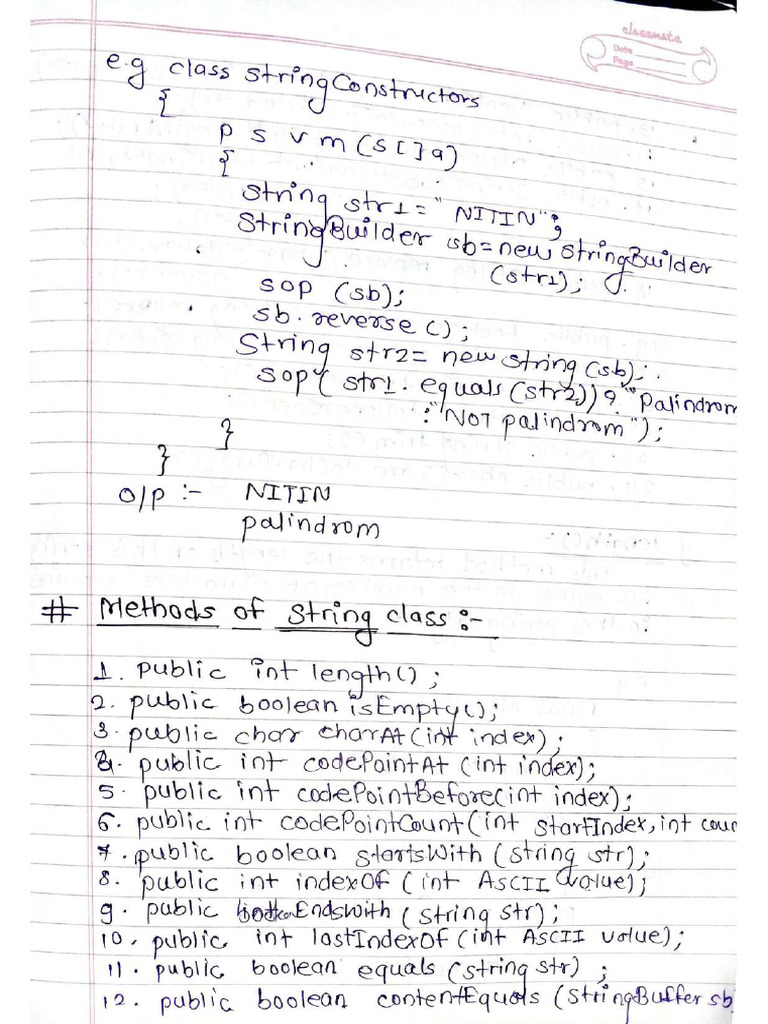 classmate
Date
Page
e.g class StringConstructors
{
p s v m (s[]a)
{
String str1 = "NITIN";
StringBuilder sb=new StringBuilder
(str1);
sop (sb);
sb.reverse();
String str2 = new String (sb);
sop( str1.equals(str2))? "Palindrom
:"NOT palindrom");
}
}
O/P :- NITIN
palindrom
# Methods of String class :-
1. public int length();
2. public boolean isEmpty();
3. public char charAt(int index);
4. public int codePointAt (int index);
5. public int codePointBefore(int index);
6. public int codePointCount(int startIndex, int coun
7. public boolean startsWith (String str);
8. public int indexOf (int ASCII value);
9. public EndsWith (String str);
10. public int lastIndexOf (int ASCII value);
11. public boolean equals (String str) ;
12. public boolean contentEquals (StringBuffer sb)